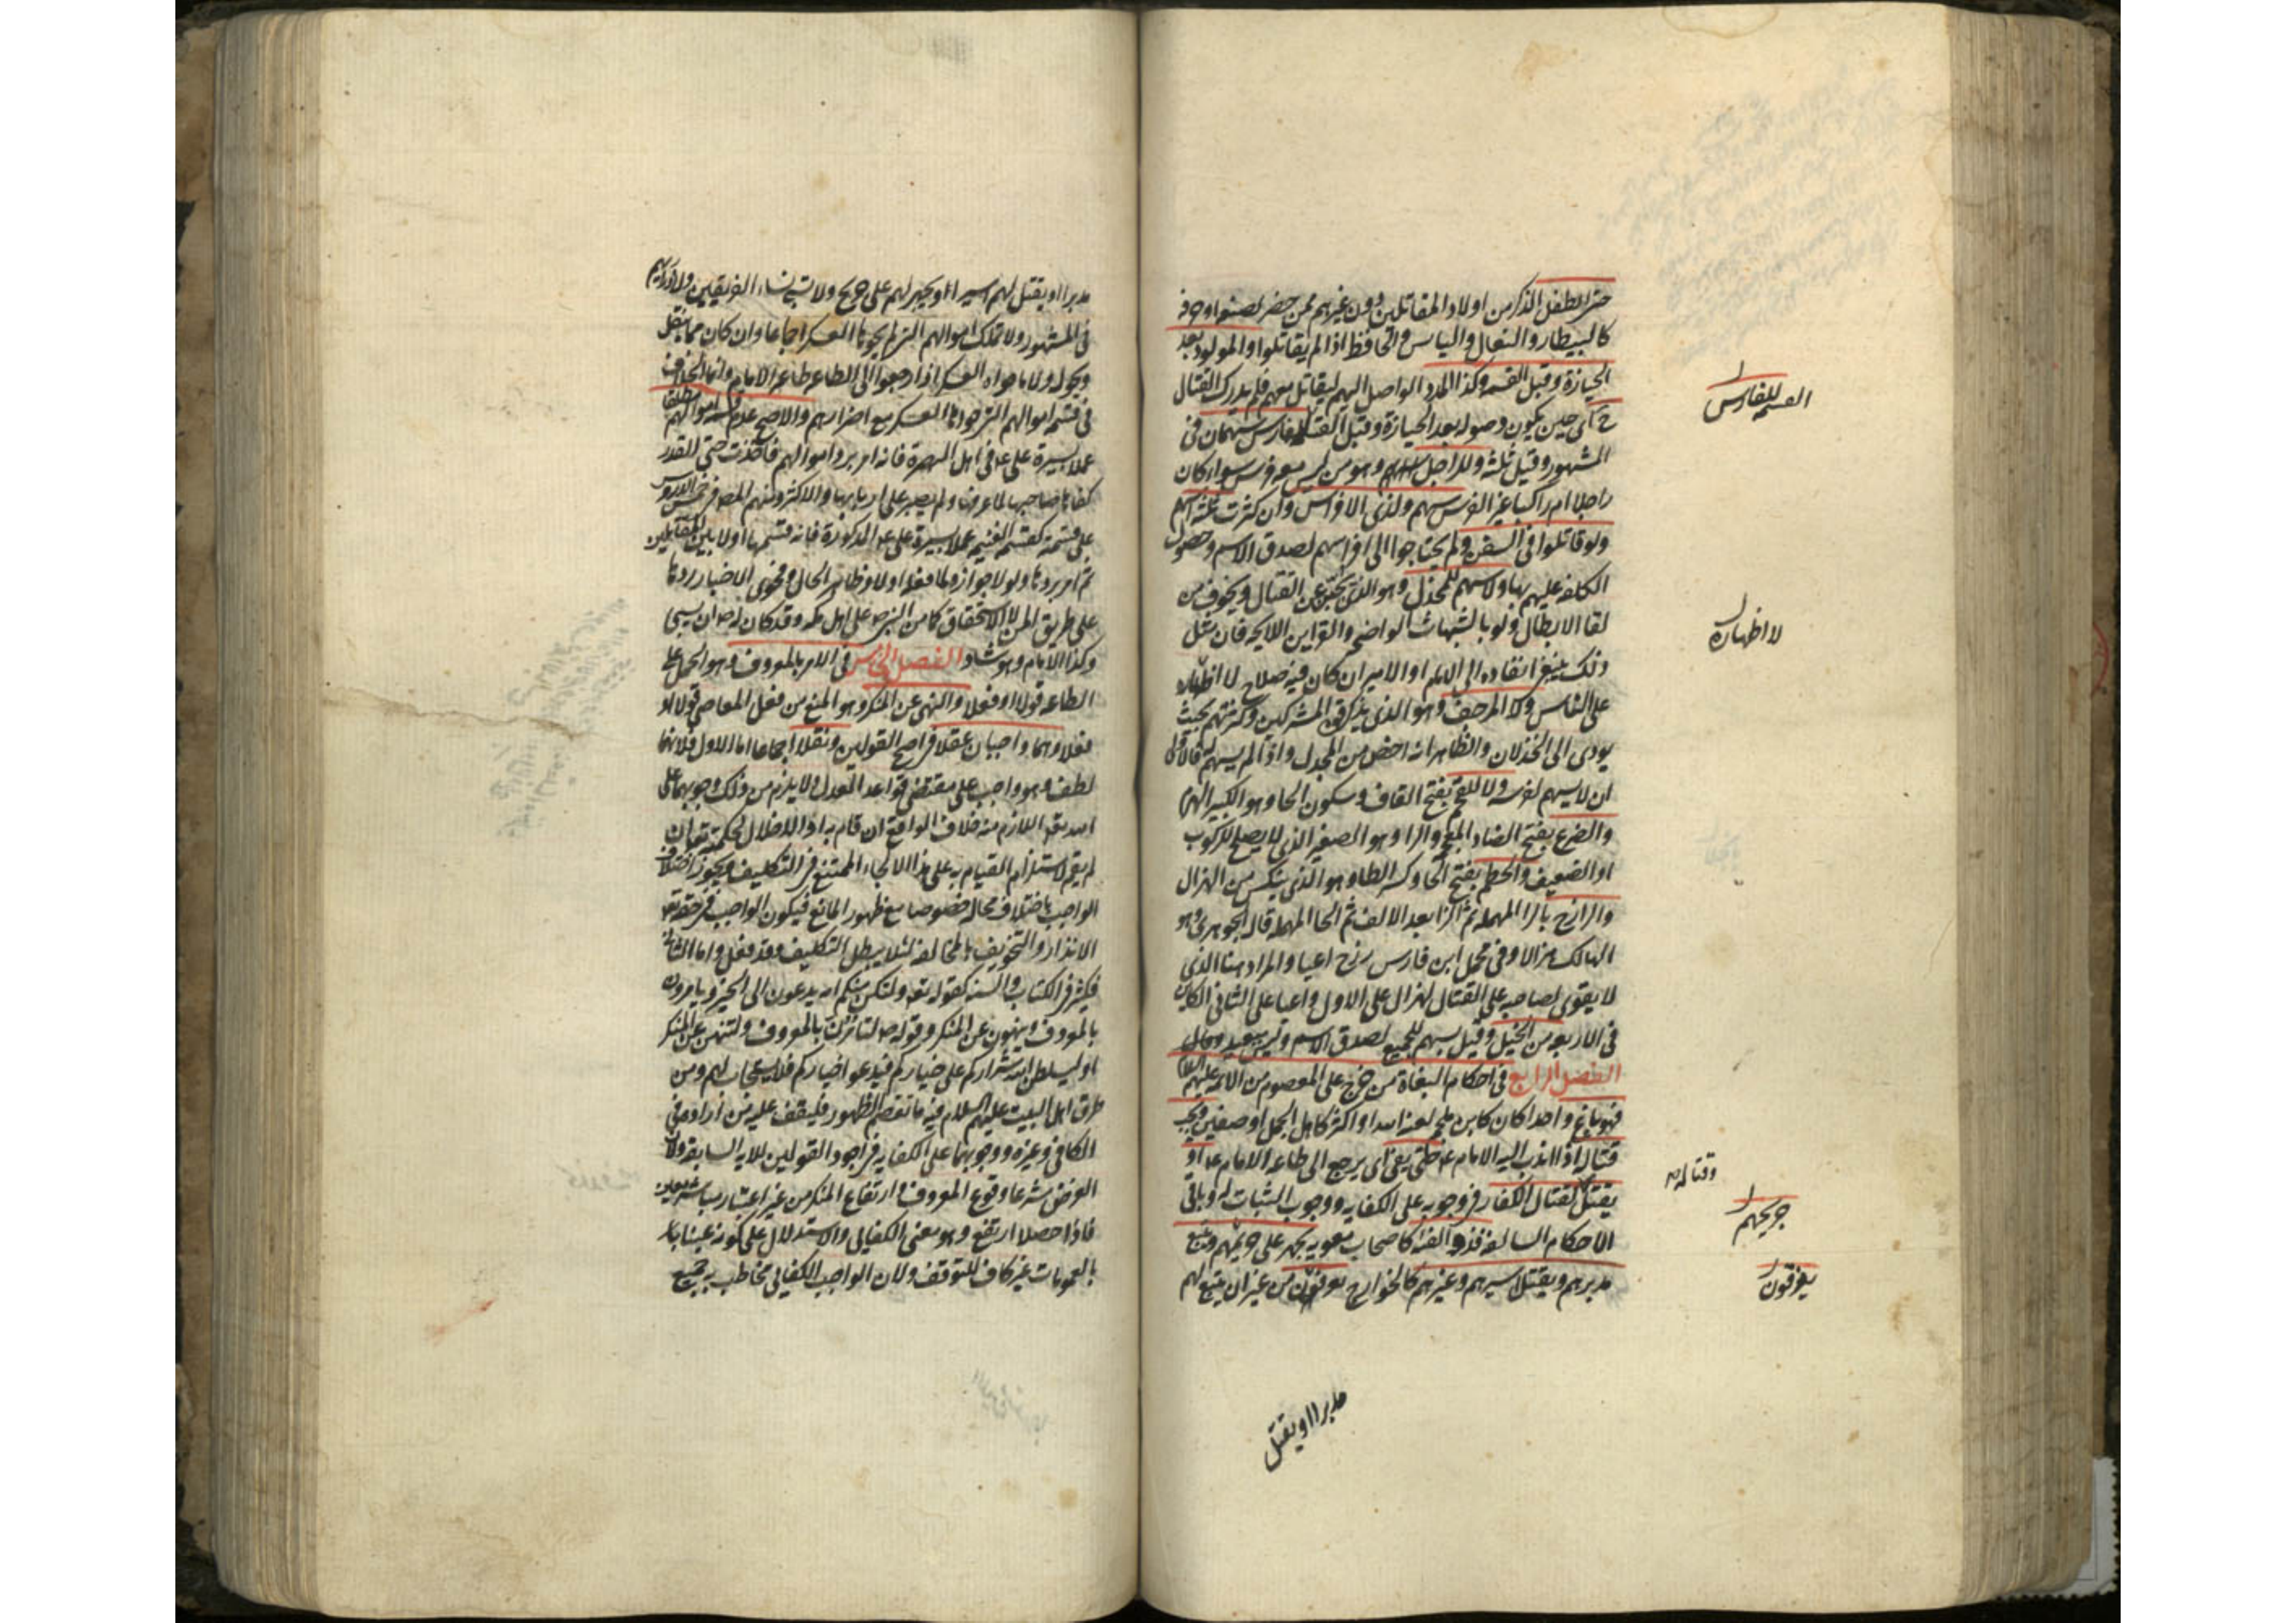 حتى الطفل الذكر من اولاد المقاتلين دون غيرهم ممن حضر لصنعة او حرفة
كالبيطار والبقال والسايس والحافظ اذا لم يقاتلوا والمولود بعد
الحيازة وقبل القسمة وكذا المدد الواصل اليهم ليقاتل معهم فلم يدرك القتال
ح اى حين يكون وصوله بعد الحيازة وقبل القسمة للفارس سهمان فى
القسمة للفارس
المشهور وقيل ثلثة وللراجل سهم وهو من ليس معه فرس سواء كان
راجلا ام راكبا غير الفرس سهم ولذى الافراس وان كثرت ثلثة اسهم
ولو قاتلوا فى السفن ولم يحتاجوا الى افراسهم لصدق الاسم وحصول
الكلفة عليهم بها ولا سهم للمخذل وهو الذى يجبن عن القتال ويخوف من
لقاء الابطال ولو بالشبهات الواضحة والقراين اللايحة فان مثل
لا اظهاره
ذلك ينبغى انقاده الى الامام او الامير ان كان فيه صلاح لا اظهاره
على الناس ولا المرجف وهو الذى يذكر قوة المشركين وكثرتهم بحيث
يودى الى الخذلان والظاهر انه اخص من المخذل واذا لم يسهم له فالاولى
ان لا يسهم لفرسه ولا للقحم بفتح القاف وسكون الحا وهو الكبير الهرم
والضرع بفتح الضاد المعجمة والرا وهو الصغير الذى لا يصلح للركوب
او الضعيف والحطم بفتح الحا وكسر الطا وهو الذى ينكسر من الهزال
والرازح بالرا المهملة ثم الزا بعد الالف ثم الحا المهملة قال الجوهرى هو
الهالك هزالا وفى مجمل ابن فارس رزح اعيا والمراد هنا الذى
لا يقوى لصاحبه على القتال لهزال على الاول واعيا على الثانى الكاين
فى الاربعة من الخيل وقيل يسهم للجميع لصدق الاسم وليس ببعيد
الفصل الرابع فى احكام البغاة من خرج على المعصوم من الائمة عليهم السلام
فهو باغ واحدا كان كابن ملجم لعنه الله او اكثر كاهل الجمل او صفين يجب
قتاله اذا ندب اليه الامام ع حتى يفى اى يرجع الى طاعة الامام ع او
يقتل وقتاله كقتال الكفار فى وجوبه على الكفاية ووجوب الثبات له وباقى
وقتاله
جريحهم
الاحكام السالفة فذو الفئة كاصحاب معوية يجهز على جريحهم ويتبع
مدبرهم ويقتل اسيرهم وغيرهم كالخوارج يفرقون من غير ان يتبع لهم
يفرقون
مدبرا او يقتل
مدبرا او يقتل لهم اسيرا او يجهز لهم على جريح ولا تسبى نساء الفريقين ولا ذراريهم
فى المشهور ولا تملك اموالهم التى لم يحوها العسكر اجماعا وان كان مما ينقل
ويحول ولا ما حواه العسكر اذا رجعوا الى الطاعة طاعة الامام وانما الخلاف
فى قسمة اموالهم التى حواها العسكر مع اصرارهم والاصح عدم قسمة اموالهم مطلقا
عملا بسيرة على ع فى اهل البصرة فانه امر برد اموالهم فاخذت حتى القدر
كفاها صاحبها لما عرفها ولم يصبر على اربابها والاكثر ومنهم المصنف فى خمس الدروس
على قسمته كقسمة الغنيمة عملا بسيرة على ع المذكورة فانه قسمها اولا بين المقاتلين
ثم امر بردها ولولا جوازه لما فعله اولا وظاهر الحال وفحوى الاخبار ردها
على طريق المن لا الاستحقاق كما من النبى ص على اهل مكة وقد كان له ص ان يسبى
وكذا الامام وهو شاذ الفصل الخامس فى الامر بالمعروف وهو الحمل على
الطاعة قولا او فعلا والنهى عن المنكر وهو المنع من فعل المعاصى قولا او
فعلا وهما واجبان عقلا فى اصح القولين ونقلا اجماعا اما الاول فلانهما
لطف وهو واجب على مقتضى قواعد العدل ولا يلزم من ذلك وجوبهما على
الله تع اللازم منه خلاف الواقع ان قام به او الاخلال بحكمته تع ان
لم يقم لاستلزام القيام به على هذا الالجاء الممتنع فى التكليف ويجوز اختلاف
الواجب باختلاف محاله خصوصا مع ظهور المانع فيكون الواجب فى حقه تع
الانذار والتخويف بالمخالفة لئلا يبطل التكليف وقد فعل واما الثانى
فكثير فى الكتاب والسنة كقوله تع ولتكن منكم امة يدعون الى الخير ويامرون
بالمعروف وينهون عن المنكر وقوله ص لتامرن بالمعروف ولتنهن عن المنكر
او ليسلطن الله شراركم على خياركم فيدعو اخياركم فلا يستجاب لهم ومن
طرق اهل البيت عليهم السلام فيه ما تقصم الظهور فليقف عليه من اراده فى
الكافى وغيره ووجوبهما على الكفاية فى اجود القولين للاية السابقة ولان
الغرض شرعا وقوع المعروف وارتفاع المنكر من غير اعتبار مباشر معين
فاذا حصلا ارتفع وهو معنى الكفائى والاستدلال على كونه عينيا
بالعمومات غير كاف للتوقف ولان الواجب الكفائى يخاطب به جميع